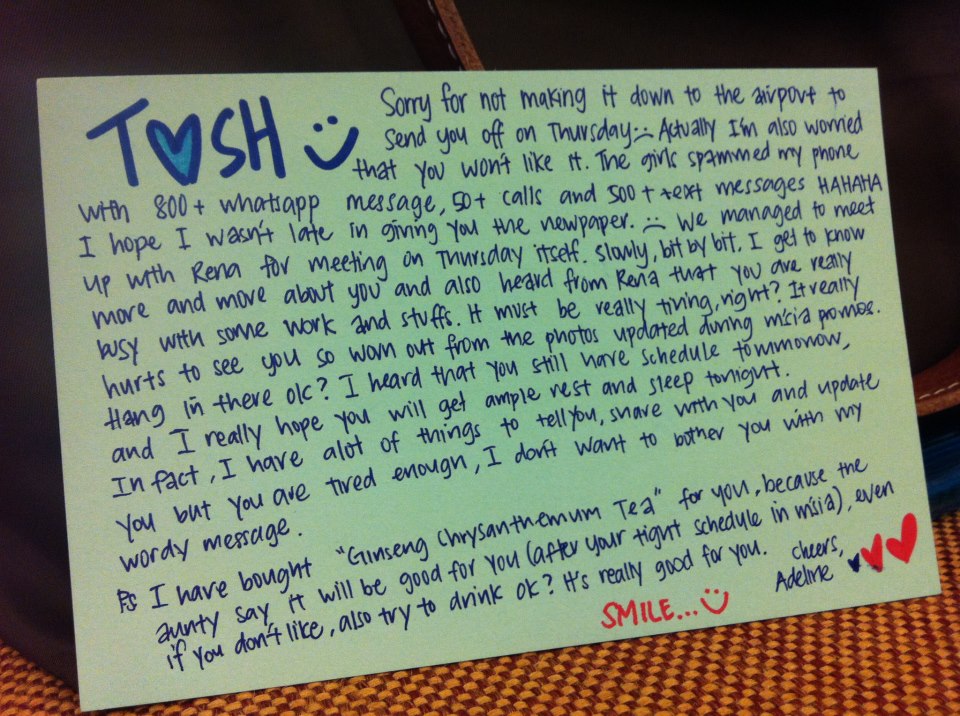 TOSH Sorry for not making it down to the airport to
send you off on Thursday :( Actually I'm also worried
that you won't like it. The girls spammed my phone
with 800+ whatsapp message, 50+ calls and 500+ text messages HAHAHA
I hope I wasn't late in giving you the newpaper. :( We managed to meet
up with Rena for meeting on Thursday itself. Slowly, bit by bit. I get to know
more and more about you and also heard from Rena that you are really
busy with some work and stuffs. It must be really tiring, right? It really
hurts to see you so worn out from the photos updated during m'sia promos.
Hang in there ok? I heard that you still have schedule tommorow,
and I really hope you will get ample rest and sleep tonight.
In fact, I have alot of things to tell you, share with you and update
you but you are tired enough, I don't want to bother you with my
wordy message.
Ps I have bought "Ginseng Chrysanthemum Tea" for you, because the
aunty say it will be good for you (after your tight schedule in m'sia), even
if you don't like, also try to drink ok? It's really good for you. Cheers,
SMILE... Adeline